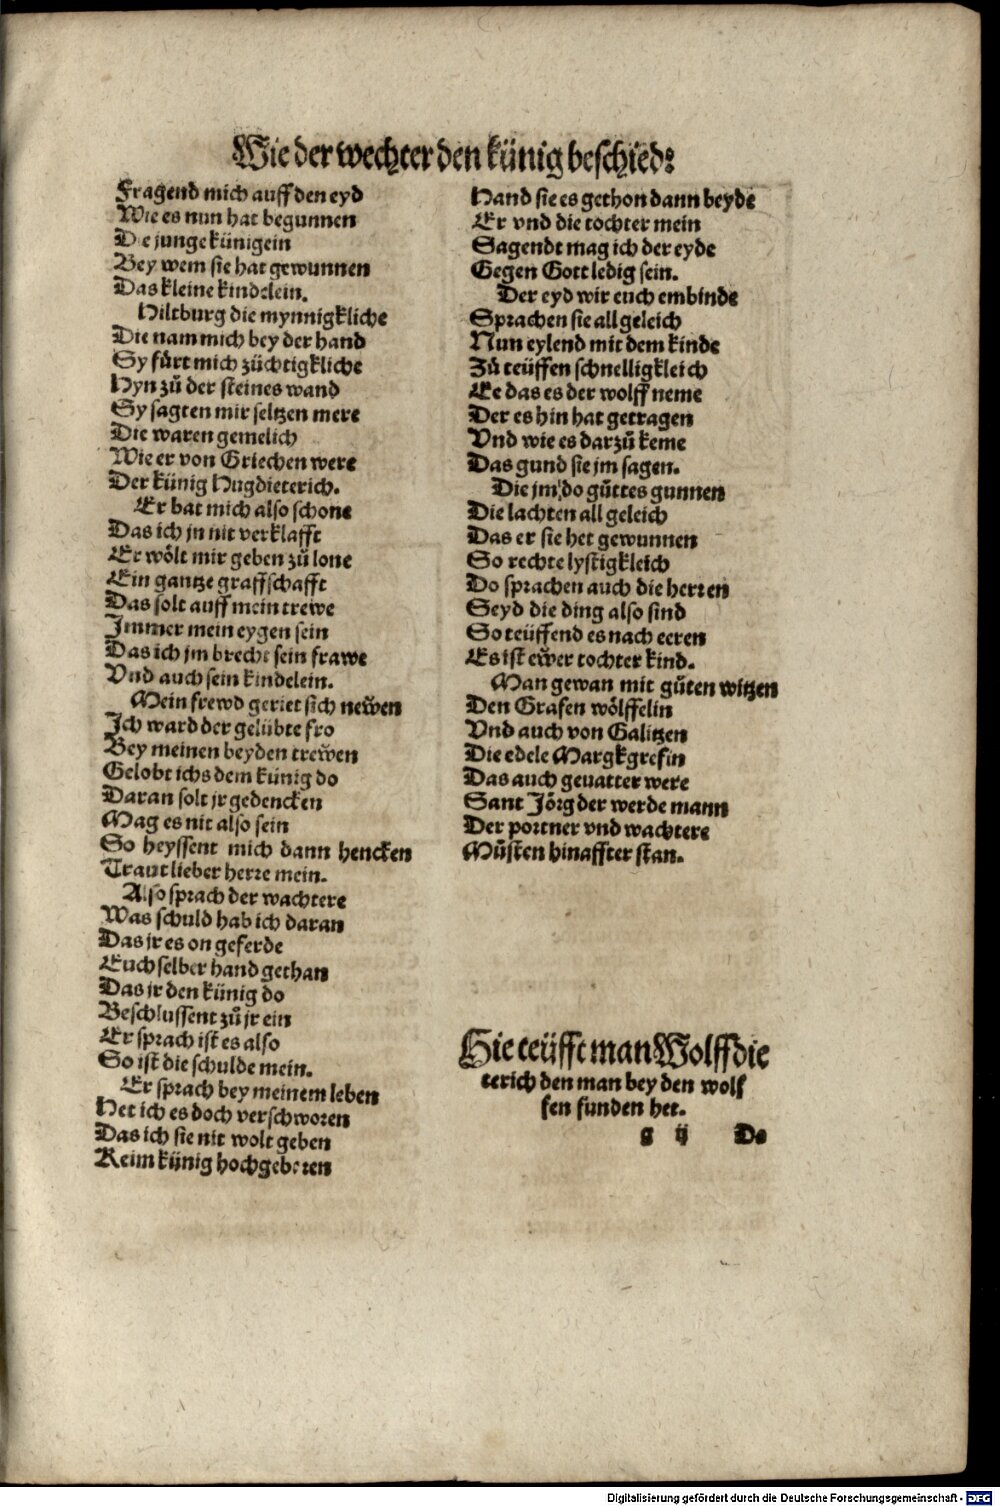 Wie der wechter den künig beschied:
Fragend mich auff den eyd
Wie es nun hat begunnen
Die junge künigein
Bey wem sie hat gewunnen
Das kleine kindelein.
Hiltburg die mynnigkliche
Die nam mich bey der hand
Sy fürt mich züchtigkliche
Hyn zů der steines wand
Sy sagten mir seltzen mere
Die waren gemelich
Wie er von Griechen were
Der künig Hugdieterich.
Er bat mich also schone
Das ich jn nit verklafft
Er wölt mir geben zů lone
Ein gantze graffschafft
Das solt auff mein trewe
Immer mein eygen sein
Das ich jm brecht sein frawe
Vnd auch sein kindelein.
Mein frewd geriet sich neẅen
Ich ward der gelübte fro
Bey meinen beyden treẅen
Gelobt ichs dem künig do
Daran solt jr gedencken
Mag es nit also sein
So heyssent mich dann hencken
Traut lieber herre mein.
Also sprach der wachtere
Was schuld hab ich daran
Das jr es on geferde
Euch selber hand gethan
Das jr den künig do
Beschlussent zů jr ein
Er sprach ist es also
So ist die schulde mein.
Er sprach bey meinem leben
Het ich es doch verschworen
Das ich sie nit wolt geben
Keim künig hochgeboren
Hand sie es gethon dann beyde
Er vnd die tochter mein
Sagendt mag ich der eyde
Gegen Gott ledig sein.
Der eyd wir euch embinde
Sprachen sie all geleich
Nun eylend mit dem kinde
Zů teüffen schnelligkleich
Ee das es der wolff neme
Der es hin hat getragen
Vnd wie es darzů keme
Das gund sie jm sagen.
Die jm do gůttes gunnen
Die lachten all geleich
Das er sie het gewunnen
So rechte lystigkleich
Do sprachen auch die herren
Seyd die ding also sind
So teüffend es nach eeren
Es ist eẅer tochter kind.
Man gewan mit gůten witzen
Den Grafen wölffelin
Vnd auch von Galitzen
Die edele Margkgrefin
Das auch geuatter were
Sant Jörg der werde mann
Der portner vnd wachtere
Můsten hinaffter stan.
Hie teüfft man Wolffdie
terich den man bey den wolf
fen funden het.
g ij De
Digitalisierung gefördert durch die Deutsche Forschungsgemeinschaft - DFG